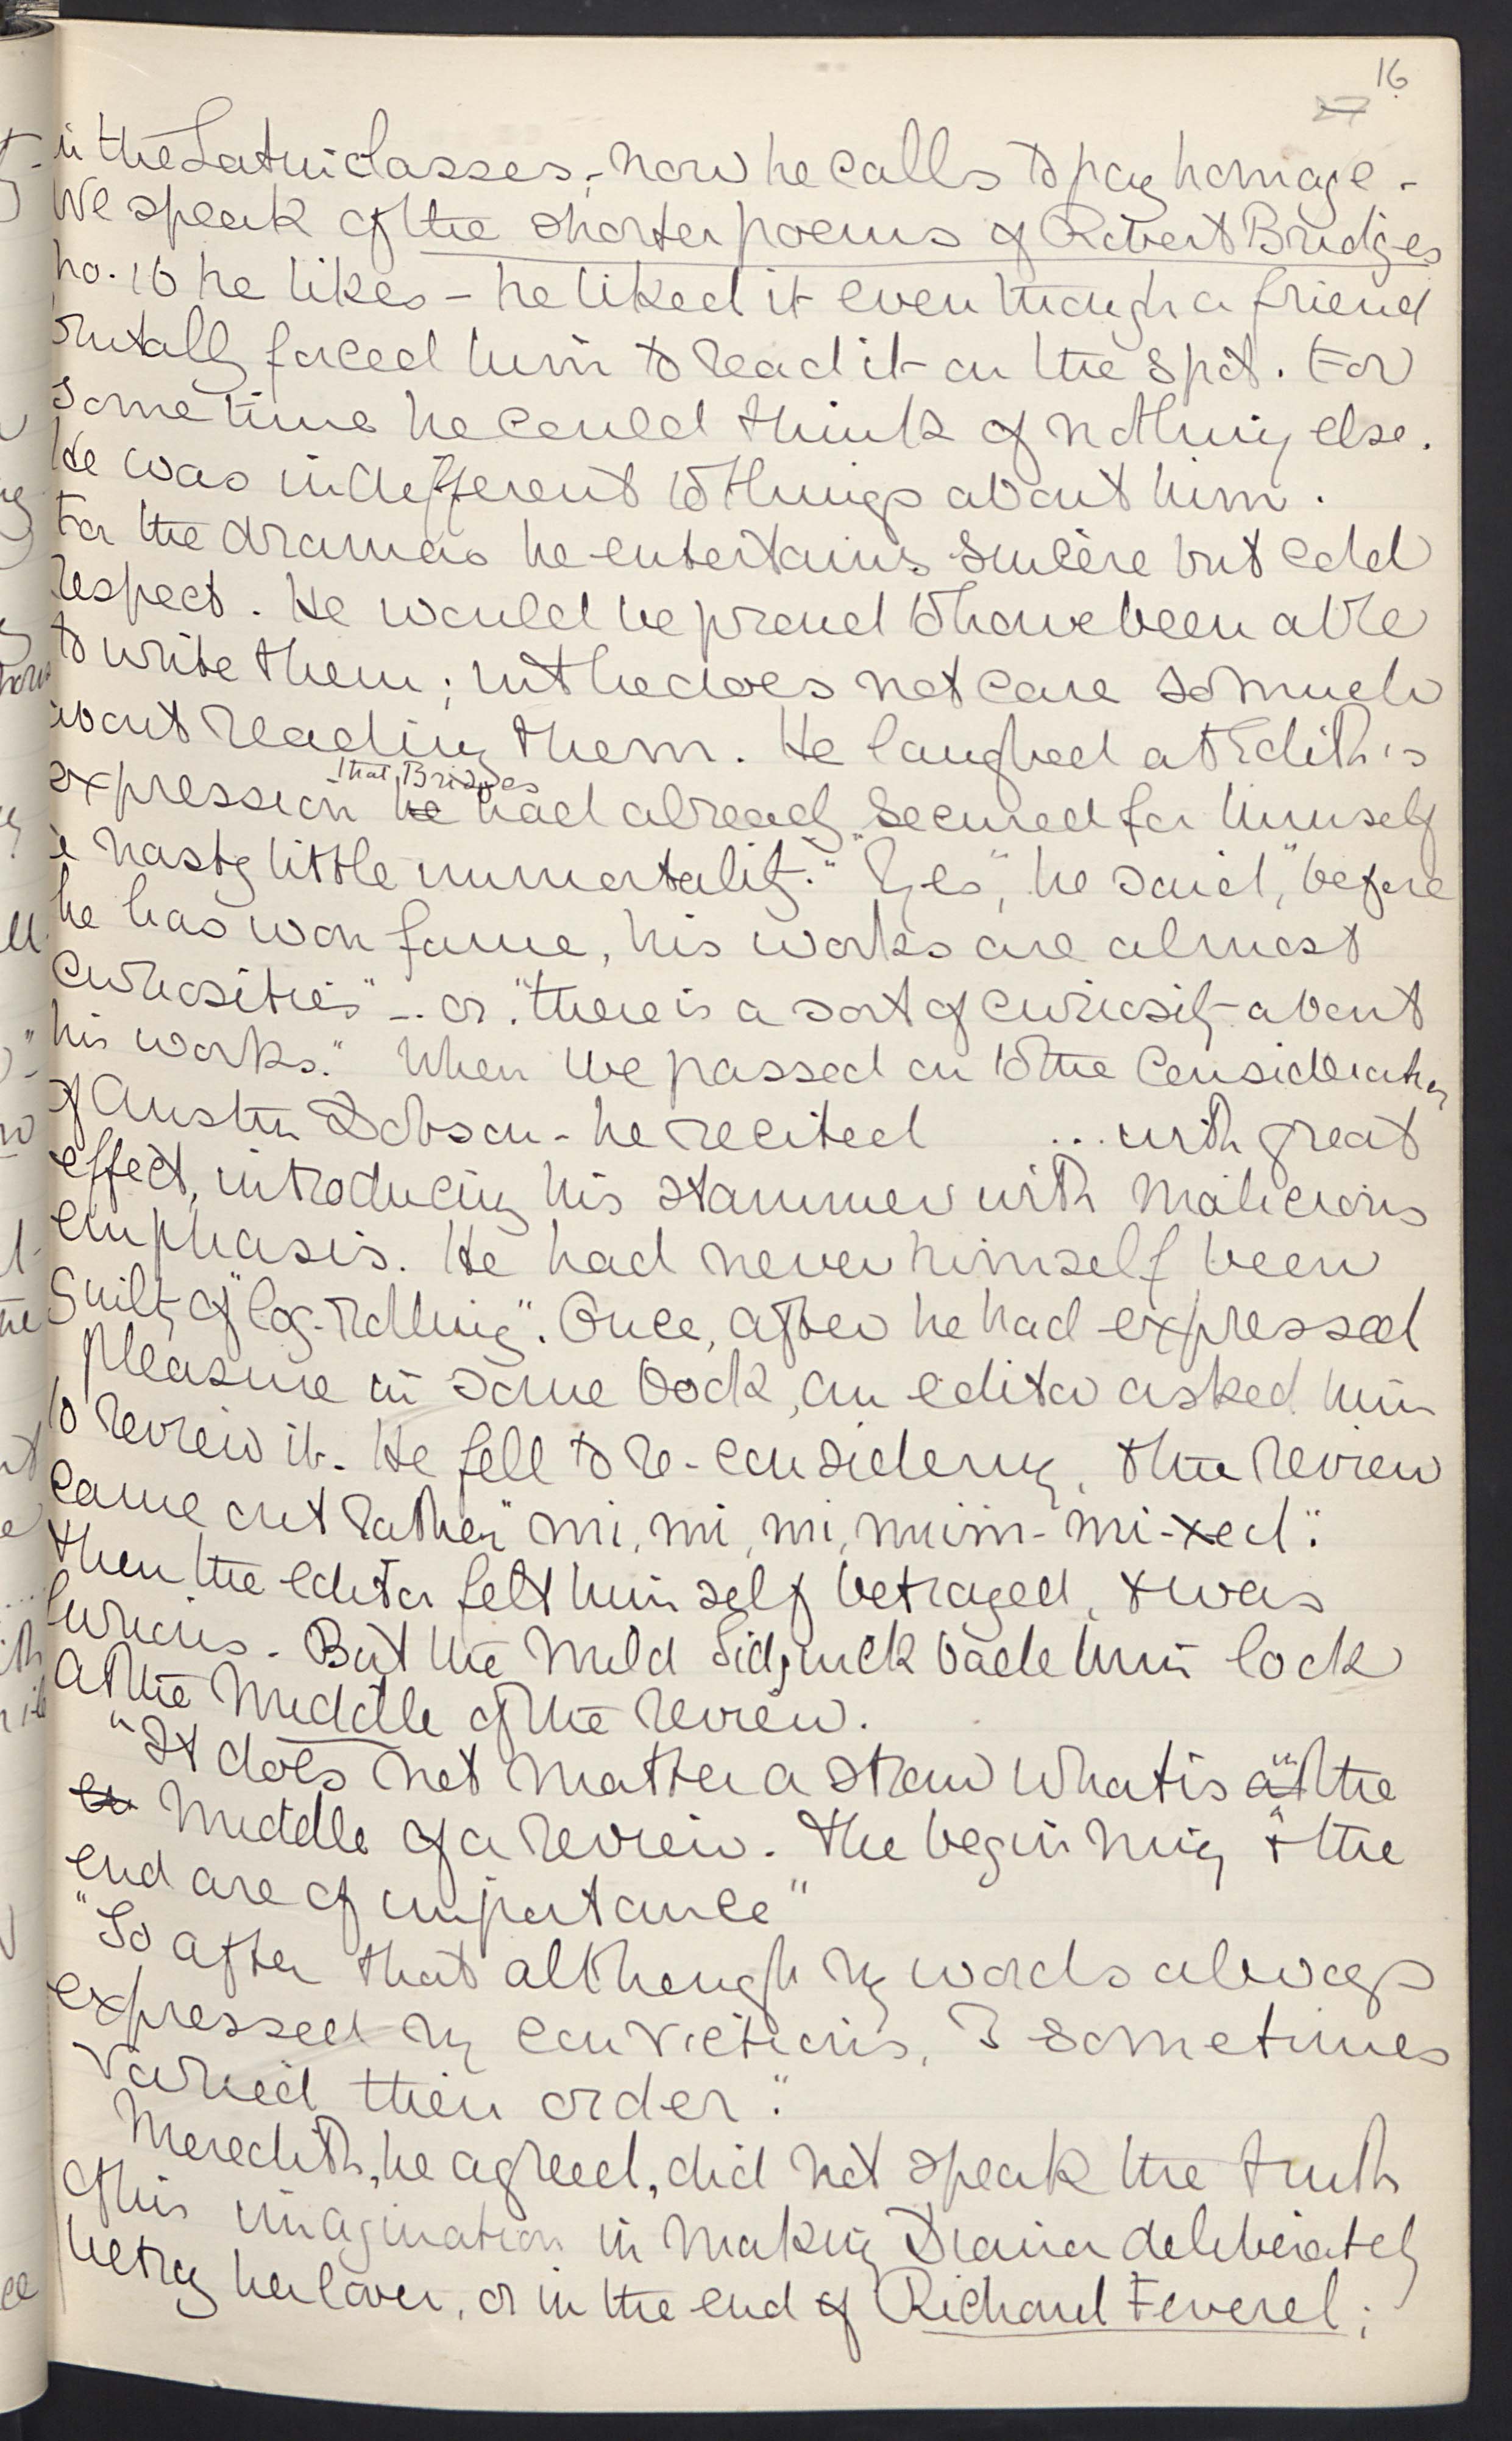 16
27
in the Latin classes, - now he calls to pay homage -
We speak of the shorter poems of Robert Bridges
no. 16 he likes - he liked it even though a friend
brutally forced him to read it on the spot. For
some time he could think of nothing else.
He was indifferent to things about him.
For the dramas he entertains sincere but cold
respect. He would be proud to have been able
to write them; but he does not care so much
about reading them. He laughed at Edith's
expression that Bridges he had already "secured for himself
a nasty little immortality." "Yes", he said, "before
he has won fame, his works are almost
curiosities" -.. or "there is a sort of curiosity about
his works." When we passed on to the consideration
of Austin Dobson - he recited ... with great
effect, introducing his stammer with malicious
emphasis. He had never himself been
guilty of "log-rolling". Once, after he had expressed
pleasure in some book, an editor asked him
to review it. He fell to re-considering, & the review
came out rather "mi, mi, mi, mim-mi-xed".
Then the editor felt himself betrayed, & was
furious - But the mild Sidgwick bade him look
at the middle of the review.
"It does not matter a straw what is at in the
en middle of a review. The beginning & the
end are of importance"
"So after that although my words always
expressed my convictions, I sometimes
varied their order."
Meredith, he agreed, did not speak the truth
of his imagination in making Diana deliberately
betray her lover, or in the end of Richard Feverel;